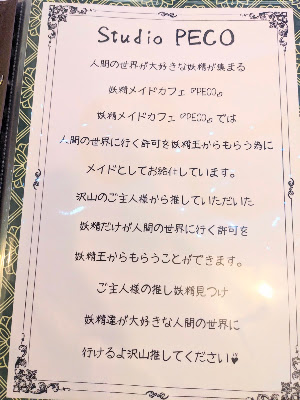 Studio PECO
人間の世界が大好きな妖精が集まる
妖精メイドカフェ『PECO』
妖精メイドカフェ『PECO』では
人間の世界に行く許可を妖精王からもらう為に
メイドとしてお給仕しています。
沢山のご主人様から推していただいた
妖精だけが人間の世界に行く許可を
妖精王からもらうことができます。
ご主人様の推し妖精見つけ
妖精達が大好きな人間の世界に
行けるよ沢山推してください♥